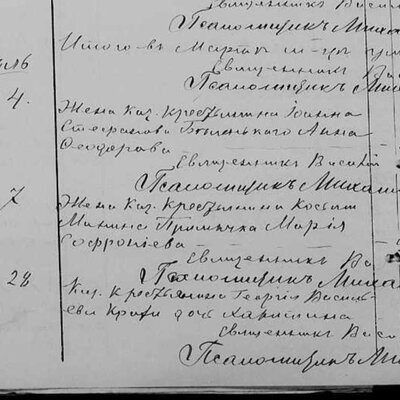 Священникъ Васил
Псаломщикъ Михаи
Итого въ Мартѣ
Священникъ Ва
Псаломщикъ Ми
ль
4.
Жена Каз. Крестьянина Іоанна
Стефанова Анна
Ѳеодорова
Священникъ Василій
Псаломщикъ Михаи
7
Жена Каз. Крестьянина Косьмы
Минина Марія
Софроніева
Священникъ Ва
Псаломщикъ Миха
28
Каз. Крестьянина Георгія Василь
ева дочь Харитина
Священникъ Васи
Псаломщикъ Ми